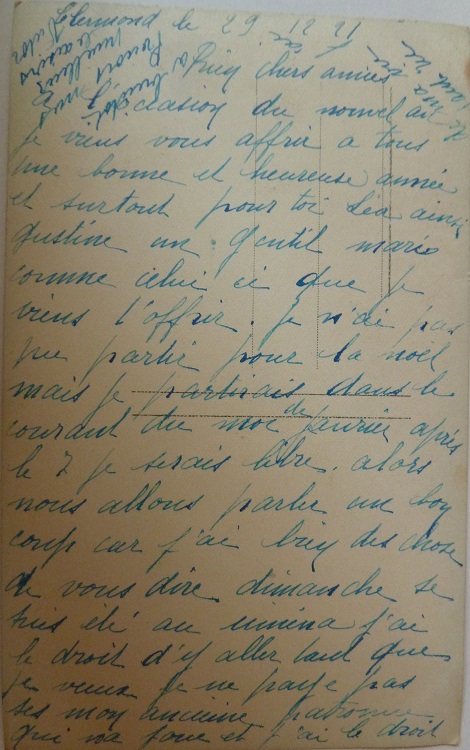 Clermond le 29 12 21
Bien chers amies
A l'occasion du nouvel an
je viens vous affrir a tous
une bonne et heureuse année
et surtout pour toi Léa ainsi
gustine un gentil marie
comme celui ci que je
viens t'offrir. je n'ai pas
pu partir pour la noël
mais je partirais dans le
courant du moi de fevrier après
le 7 je serais libre. alors
nous allons parler un boy
coup car j'ai biey des chose
de vous dire dimanche se
suis été au cinéma j'ai
le droit d'y aller tant que
je veux je ne paye pas
ses moy ancienne patronne
qui ma foue et j'ai le droit